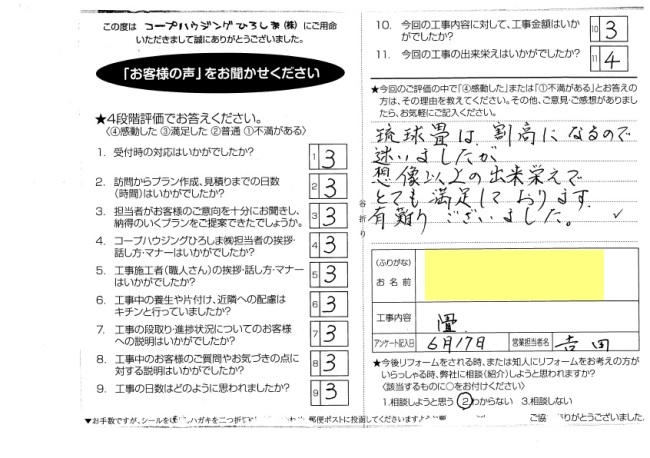 この度は コープハウジングひろしま(株) にご用命
いただきまして誠にありがとうございました。
「お客様の声」をお聞かせください
★4段階評価でお答えください。
〈④感動した ③満足した ②普通 ①不満がある〉
1. 受付時の対応はいかがでしたか? 1 3
2. 訪問からプラン作成、見積りまでの日数
(時間)はいかがでしたか? 2 3
3. 担当者がお客様のご意向を十分にお聞きし、
納得のいくプランをご提案できたでしょうか。 3 3
4. コープハウジングひろしま㈱担当者の挨拶・
話し方・マナーはいかがでしたか? 4 3
5. 工事施工者(職人さん)の挨拶・話し方・マナー
はいかがでしたか? 5 3
6. 工事中の養生や片付け、近隣への配慮は
キチンと行っていましたか? 6 3
7. 工事の段取り・進捗状況についてのお客様
への説明はいかがでしたか? 7 3
8. 工事中のお客様のご質問やお気づきの点に
対する説明はいかがでしたか? 8 3
9. 工事の日数はどのように思われましたか? 9 3
▼お手数ですが、シールを ハガキを二つ折 郵便ポストに投函してください
谷折り
10. 今回の工事内容に対して、工事金額はいか
がでしたか? 10 3
11. 今回の工事の出来栄えはいかがでしたか? 11 4
★今回のご評価の中で「④感動した」または「①不満がある」とお答えの
方は、その理由を教えてください。その他、ご意見・ご感想がありまし
たら、お気軽にご記入ください。
琉球畳は 割高になるので
迷いましたが
想像以上の出来栄えで
とても満足しております。
有難うございました。
(ふりがな)
お名前
工事内容 畳
アンケート記入日 6月17日 営業担当者名 吉田
★今後リフォームをされる時、または知人にリフォームをお考えの方が
いらっしゃる時、弊社に相談(紹介)しようと思われますか?
〈該当するものに○をお付けください〉
1.相談しようと思う ②わからない 3.相談しない
ありがとうございました。